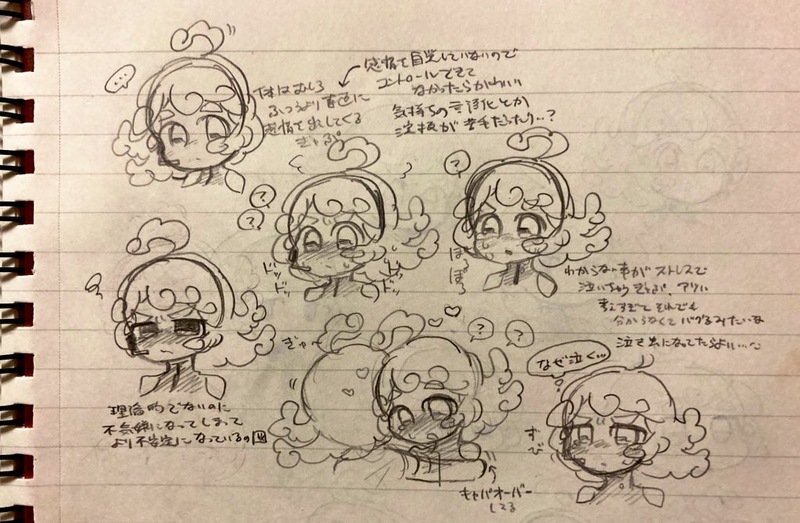 …
感情を自覚していないので
コントロールできて
なかったらかわいい
気持ちの言語化とか
泣き
が苦手だったり…?
体はむしろ
ふつうより
に
感情を出してくる
ぎゃぷ
?
?
?
ドッ
ドッ
ドッ
ドッ
ぽろ
ぽろ
わからない事がストレスで
泣いちゃう
アリ
考えすぎて それでも
分からなくて バグるみたいな
泣き
になってたらよい…
理論的でないのに
不機嫌になってしまって
より不安定になっているの図
ぎゅ~
?
?
キャパオーバー
してる
なぜ泣く…
ずび